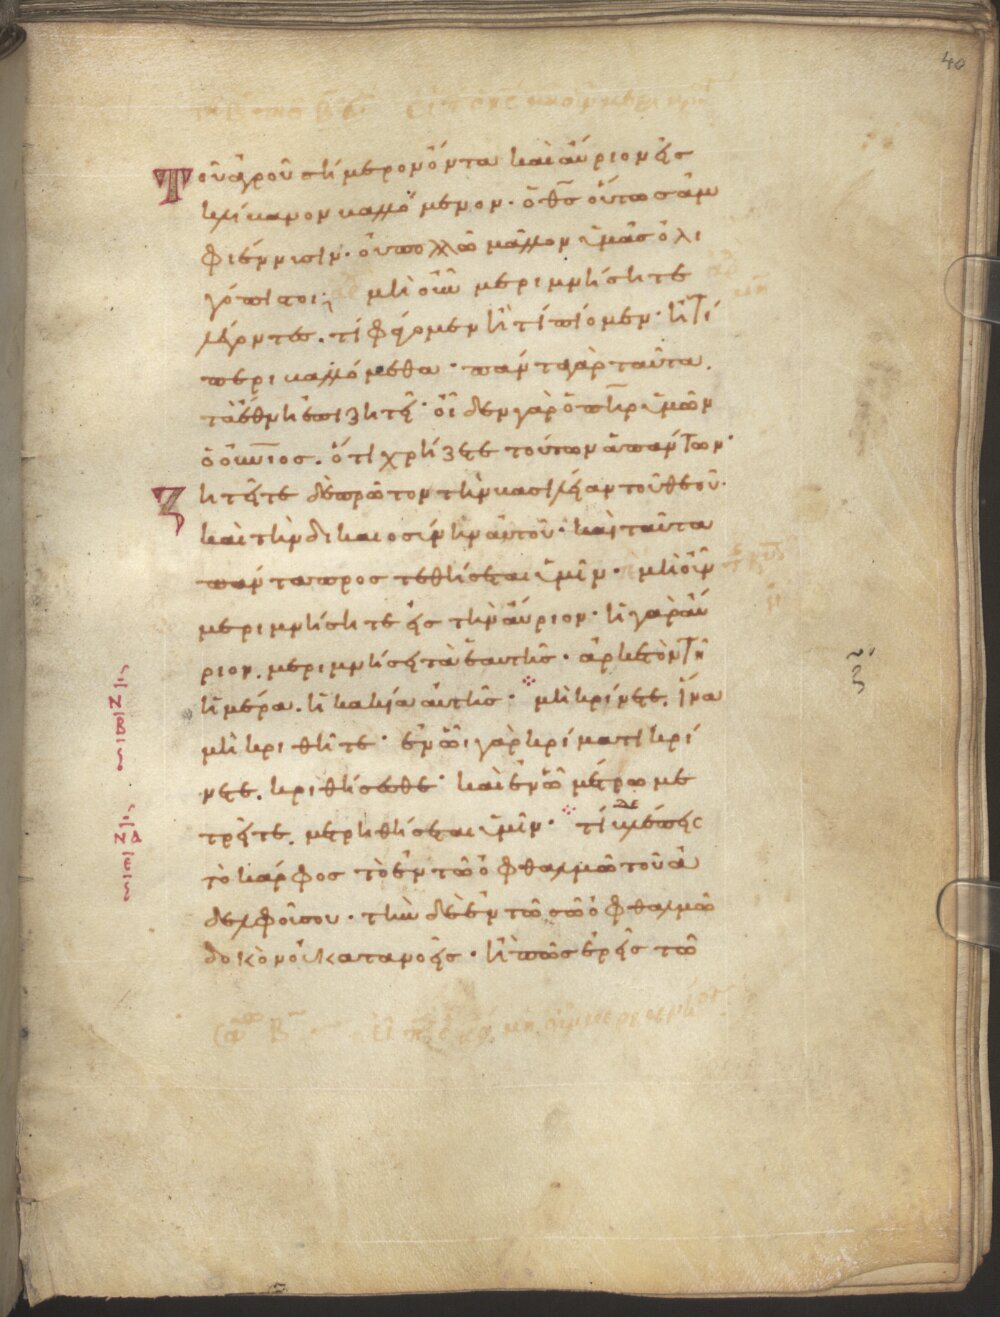 40
Τοῦ ἀγροῦ σήμερον ὄντα καὶ αὔριον εἰς
κλίβανον βαλλόμενον· ὁ θς οὕτως ἀμ
φιέννυσιν· οὐ πολλῶ μᾶλλον ὑμᾶς ὀλι
γόπιστοι; μὴ οὖν μεριμνήσητε
λέγοντες. τί φάγωμεν ἢ τί πίωμεν· ἢ τί
περιβαλλόμεθα· πάντα γὰρ ταῦτα.
τὰ ἔθνη ἐπιζητεῖ· οἶδεν γὰρ ὁ πηρ ὑμῶν
ὁ οὐνιος. ὅτι χρήζετε τούτων ἁπάντων·
Ζητεῖτε δὲ πρῶτον τὴν βασιλείαν τοῦ θεοῦ·
καὶ τὴν δικαιοσύνην αὐτοῦ· καὶ ταῦτα
πάντα προστεθήσεται ὑμῖν· μὴ οὖν
μεριμνήσητε εἰς τὴν αὔριον· ἡ γὰρ αὔ
ριον. μεριμνήσει τὰ ἑαυτῆς· ἀρκετὸν τῆ
ἡμέρα. ἡ κακία αὐτῆς· μὴ κρίνετε. ἵνα
μὴ κριθῆτε· ἐν ὧι γὰρ κρίματι κρί
νετε. κριθήσεσθε· καὶ ἐν ὧ μέτρω με
τρεῖτε. μετρηθήσεται ὑμῖν· τί δὲ βλέπεις
τὸ κάρφος τὸ ἐν τῶ ὀφθαλμῶ τοῦ ἀ
δελφοῦ σου· τὴν δὲ ἐν τῶ σῶ ὀφθαλμῶ
δοκὸν οὐ κατανοεῖς· ἢ πῶς ἐρεῖς τῶ